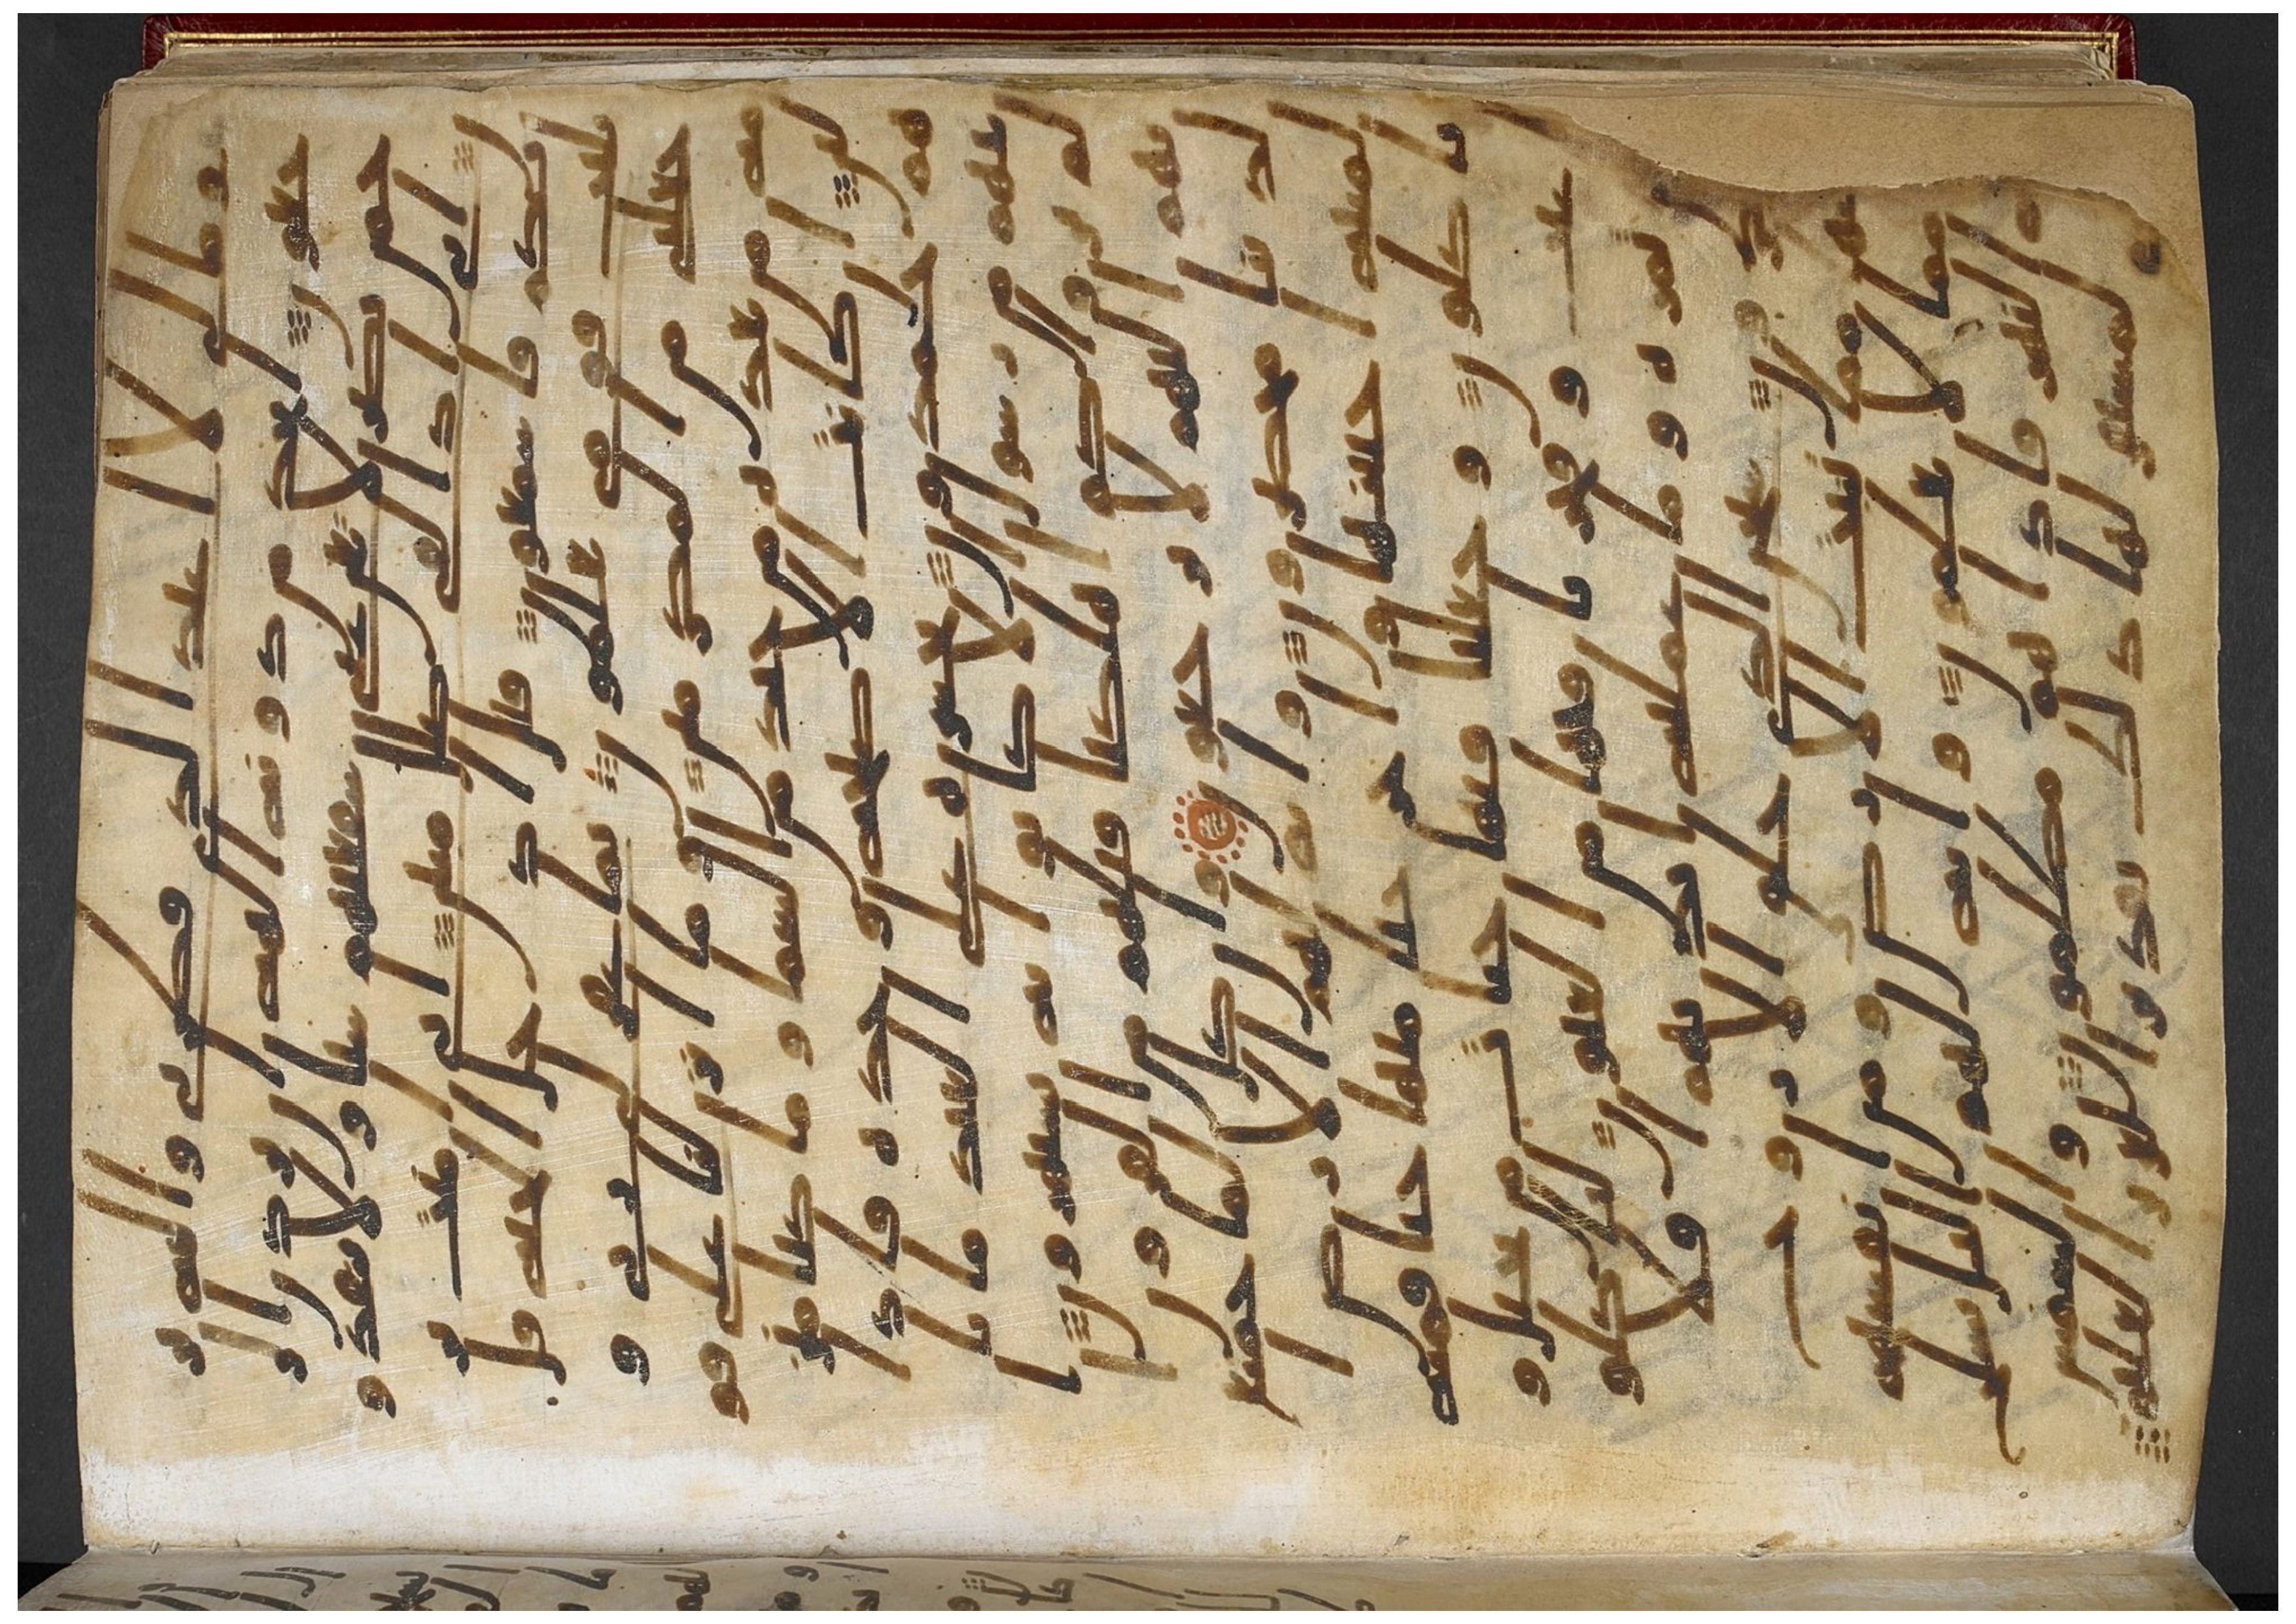 وما لى لا اعبد الذى فطرنى واليه تر
جعون اتخذ من دونه الهة ان يردن ا
لرحمن بضر لا تغن عنى شفعتهم شيا ولا ينقذو
ن انى اذا لفى ضلل مبين انى امنت بر
بكم فاسمعون قيل ادخل الجنة قل ي
ليت قومى يعلمون بما غفر لى ربى و
جعلنى من المكرمين وما انزلنا على قو
مه من بعده من جند من السما وما كنا منز
لين ان كنت الا صيحة وحدة فاذا
هم خمدون يحسرة على العباد ما يا
تيهم من رسول الا كانوا به يستهزون ا
لم يروا كم اهلكنا قبلهم من القرون ا
نهم اليهم لا يرجعون وان كل لما جميع
لدينا محضرون واية لهم الارض ا
لميتة احيينها واخرجنا منها حبا فمنه
ياكلون وجعلنا فيها جنت من نخيل و
اعنب وفجرنا فيها من العيون لياكلو
ا من ثمره وما عملته ايديهم افلا
يشكرون سبحن الذى خلق الازوج
كلها مما تنبت الارض ومن انفسهم
ومما لا يعلمون واية لهم اليل نسلخ
منه النهر فاذا هم مظلمون والشمس
تجرى لمستقر لها ذلك تقدير العزيز العليم